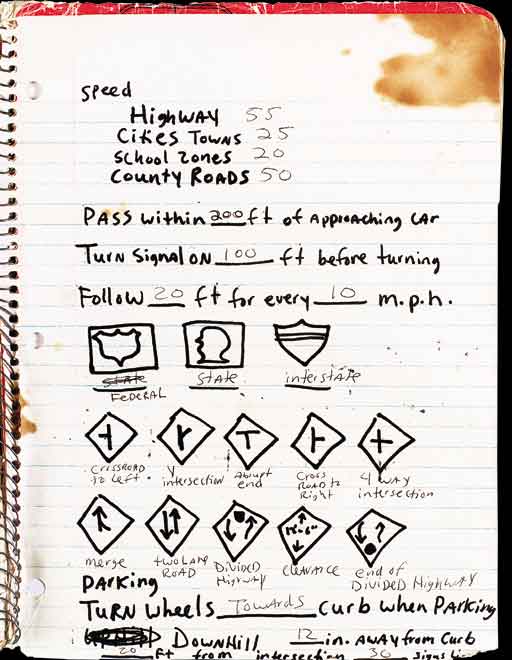 Speed
Highway 55
Cities Towns 25
School Zones 20
County Roads 50
Pass within 200 ft of Approaching car
Turn Signal on 100 ft before turning
Follow 20 ft for every 10 m.p.h.
State State interstate
Federal
Crossroad to left. Y intersection Abrupt end Cross Road to Right 4 way intersection
merge two lane Road Divided Highway Clearance end of Divided Highway
Parking
Turn wheels Towards curb when Parking
Downhill 12 in. away from curb
20 ft from intersection 30